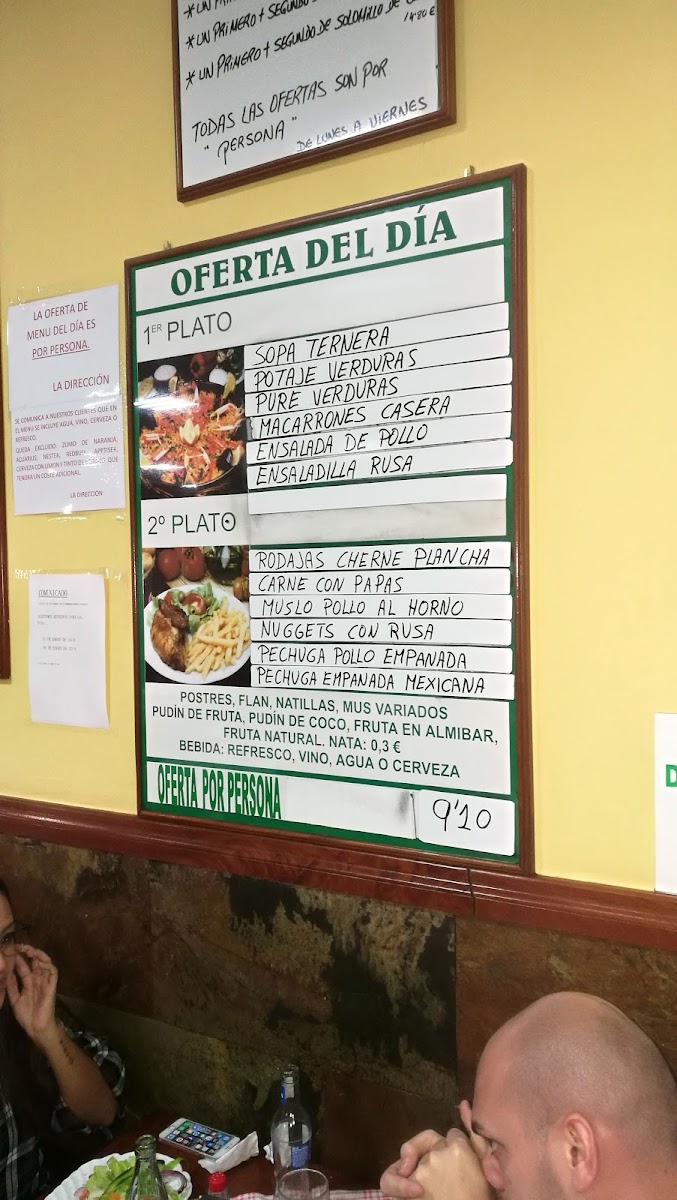 *UN
*UN PRIMERO + SEGUNDO
*UN PRIMERO + SEGUNDO DE SOLOMILLO DE
14'80€
TODAS LAS OFERTAS SON POR
"PERSONA"
DE LUNES A VIERNES
OFERTA DEL DÍA
1ER PLATO
SOPA TERNERA
POTAJE VERDURAS
PURE VERDURAS
MACARRONES CASERA
ENSALADA DE POLLO
ENSALADILLA RUSA
2º PLATO
RODAJAS CHERNE PLANCHA
CARNE CON PAPAS
MUSLO POLLO AL HORNO
NUGGETS CON RUSA
PECHUGA POLLO EMPANADA
PECHUGA EMPANADA MEXICANA
POSTRES, FLAN, NATILLAS, MUS VARIADOS
PUDÍN DE FRUTA, PUDÍN DE COCO, FRUTA EN ALMIBAR,
FRUTA NATURAL. NATA: 0,3 €
BEBIDA: REFRESCO, VINO, AGUA O CERVEZA
OFERTA POR PERSONA
9'10
LA OFERTA DE
MENU DEL DÍA ES
POR PERSONA.
LA DIRECCIÓN
SE COMUNICA A NUESTROS CLIENTES QUE EN
EL MENU SE INCLUYE AGUA, VINO, CERVEZA O
REFRESCO.
QUEDA EXCLUIDO: ZUMO DE NARANJA,
ACUARIUS, NESTEA, REDBULL, APPTISER,
CERVEZA CON LIMON Y TINTO DE QUE
TENDRA UN COSTE ADICIONAL.
LA DIRECCION
COMUNICADO
D